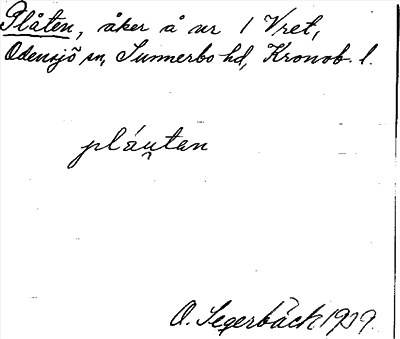 Plåten, åker å nr 1 Vret,
Odensjö sn, Sunnerbo hd, Kronob. l.
pláu̯tan
O. Segerbäck 1939.